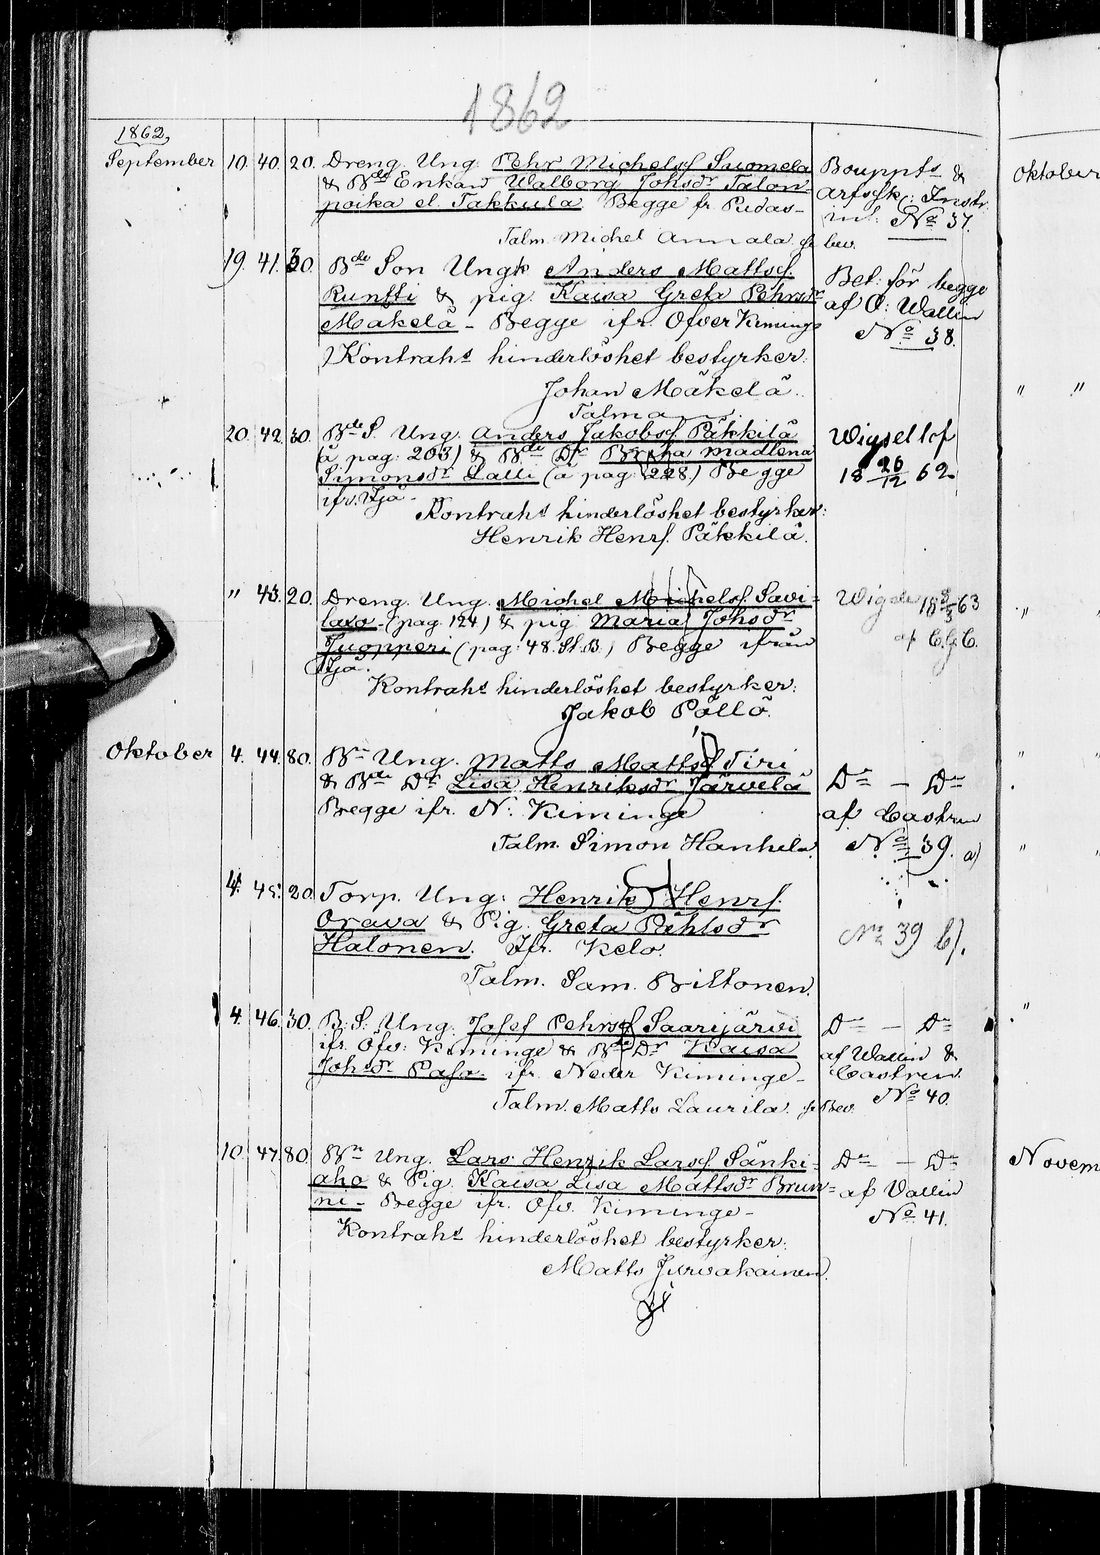 1862
1862,
September 10. 40. 20. Dreng. Ung. Pehr Michelsf Suomela
& Bde Enkan Walborg Johsdr Talon-
poika el. Takkula Begge fr. Pudas-
Talm. Michel Annala fr bev.
Bouppts &
Arfssk: Instr.
No 37.
19. 41. 30. Bde Son Ungk Anders Mattsf.
Runtti & pig. Kaisa Greta Pehrsdr
Makelä - Begge ifr. Ofver Kiminge
Kontrahs hinderlöshet bestyrker:
Johan Mäkelä.
Talman
Bet. för begge
af O: Wallin
No 38.
20. 42. 30. Bde S. Ung. Anders Jakobsf Päkkilä
(å pag: 203) & Bde Dr Britha Madlena
Simonsdr Lalli (å pag: 228) Begge
ifr. Ijä.
Kontrahs hinderlöshet bestyrker:
Henrik Henrs. Päkkilä.
Wigsel lof
18 26/12 62
" 43. 20. Dreng. Ung. Michel Michelsf. Savi-
laxo (pag 124) & pig Maria Johsdr
Juopperi (pag: 48. St. B.) Begge ifrån
Ijä.
Kontrahs hinderlöshet bestyrker:
Jakob Pöllö.
Wigde 18 8/3 63
af C.G.C.
Oktober 4. 44. 80. Bn Ung. Matts Mattsf Tiri
& Bde Dr Lisa Henriksdr Järvelä
Begge ifr. N. Kiminge
Talm. Simon Hankela.
Do — Do
af Castren
No 39. a)
4. 45. 20. Torp. Ung: Henrik Henrs.
Orava & Pig. Greta Pehlsdr
Halonen. Ifr. Kelo.
Talm. Sam. Brittonen.
No 39 b).
4. 46. 30. B. S. Ung. Josef Pehrsf Saarijärvi
ifr. Öfv: Kiminge & Bde Dr Kaisa
Johsdr Paso. ifr. Neder Kiminge-
Talm. Matts Laurila. fr Bev.
Do — Do
af Wallin &
Castren.
No 40.
10. 47. 80. Bn Ung. Lars Henrik Larsf Sänki-
aho & Pig. Kaisa Lisa Mattsdr Brun-
ni - Begge ifr. Öfv. Kiminge-
Kontrahs hinderlöshet bestyrker:
Matts Jurvakainen.
Do — Do
af Vallin
No 41.
Oktober
Novem